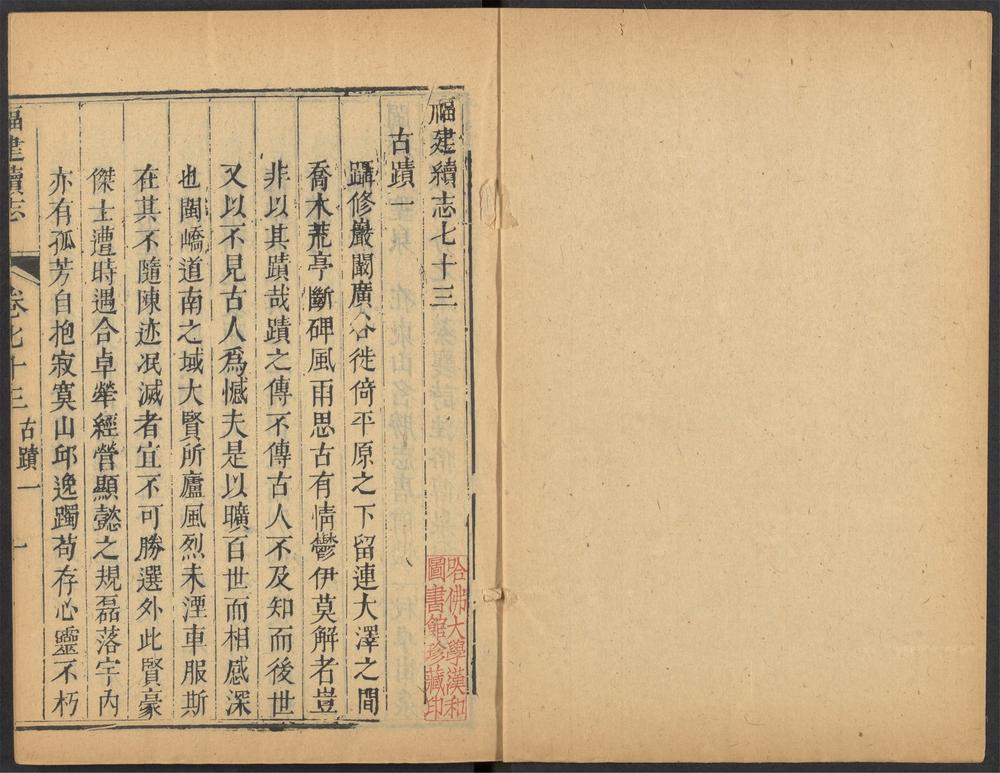 福建續志七十三
古蹟一
躡修巖闞廣谷徙倚平原之下留連大澤之間
喬木荒亭斷碑風雨思古有情鬱伊莫解者豈
非以其蹟哉蹟之傳不傳古人不及知而後世
又以不見古人爲憾夫是以曠百世而相感深
也閩嶠道南之域大賢所廬風烈未湮車服斯
在其不隨陳迹泯滅者宜不可勝選外此賢豪
傑士遭時遇合卓犖經營顯懿之規磊落宇內
亦有孤芳自抱寂寞山邱逸躅苟存心靈不朽
福建續志
卷七十三
古蹟一
一
哈佛大學漢和
圖書館珍藏印